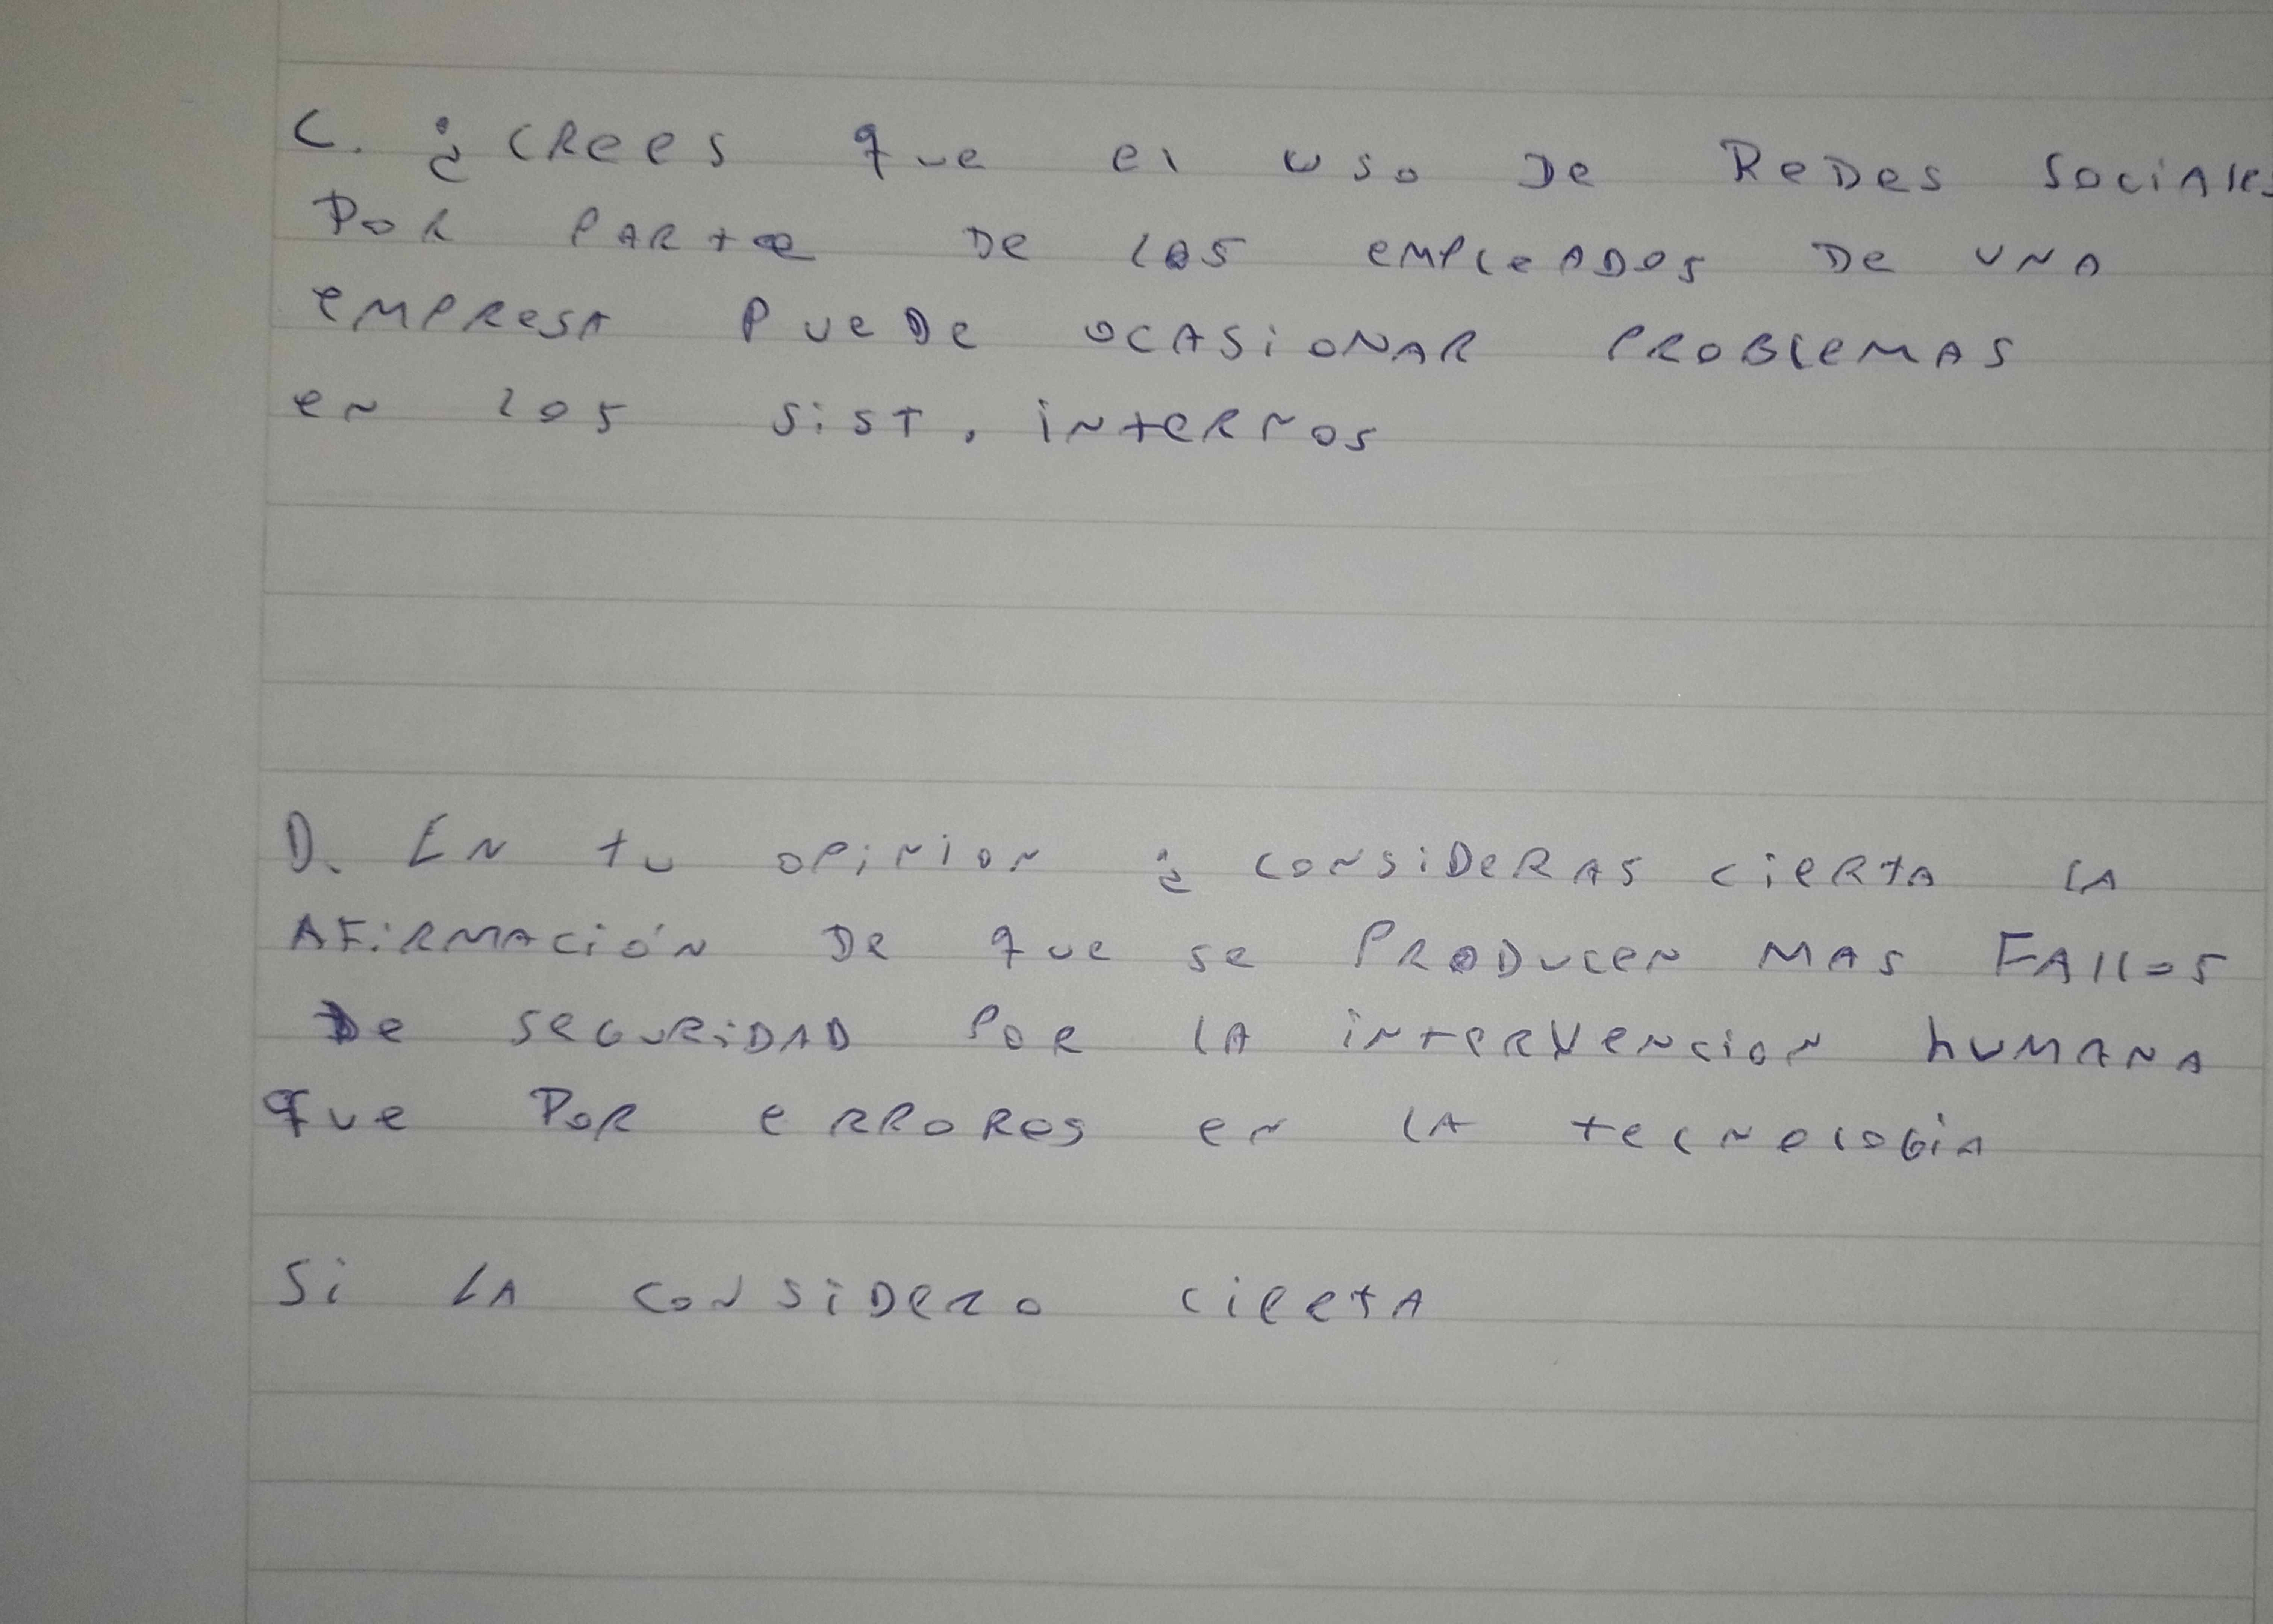 C. ¿Crees que el uso de Redes sociales
Por parte de los empleados de una
empresa puede ocasionar problemas
en los sist. internos
D. En tu opinion ¿consideras cierta la
afirmación de que se producen mas fallos
De seguridad por la intervencion humana
que por errores en la tecnologia
Si la considero cierta